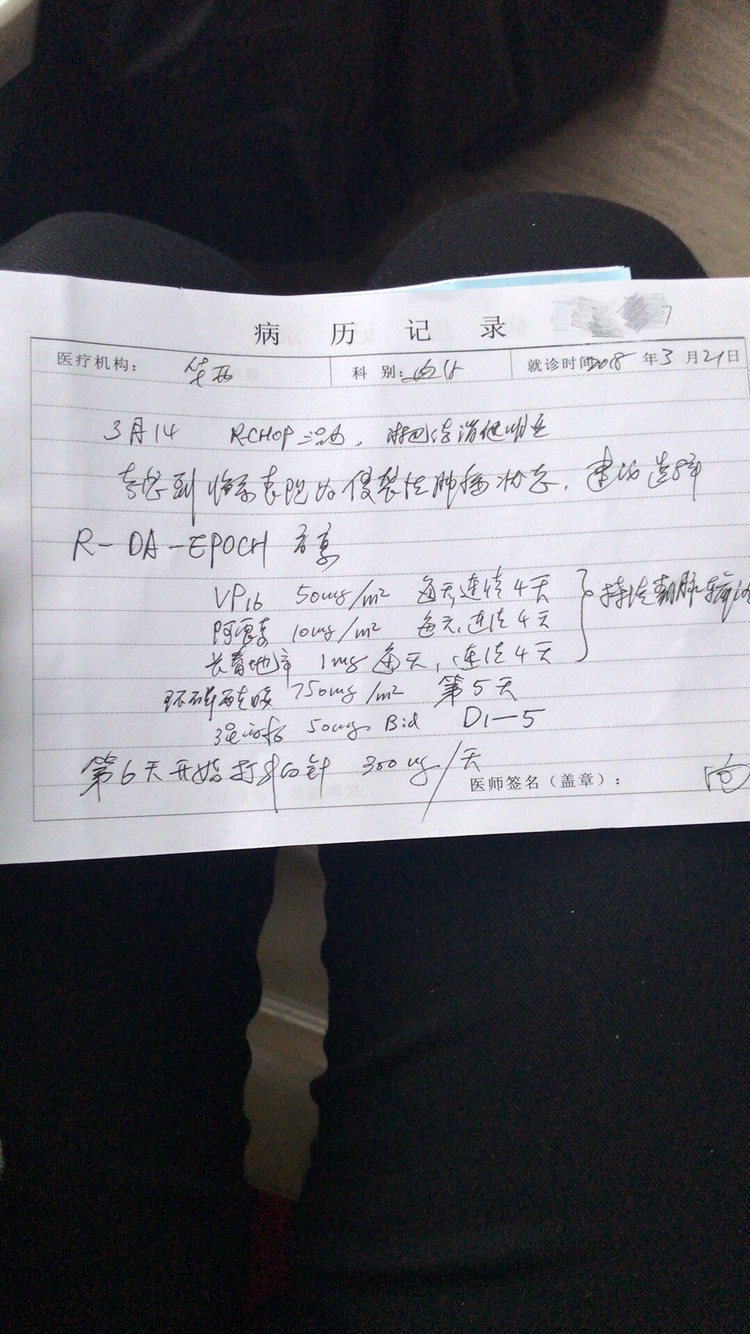 病 历 记 录
医疗机构: 华西 科 别: 血液 就诊时间2018 年3月21日
3月14 RCHOP 治疗, 淋巴结消
考虑到临床表现为侵袭性肿瘤状态, 建议选择
R-DA-EPOCH 方案
VP16 50mg/m² 每天,连续4天
阿霉素 10mg/m² 每天,连续4天 } 持续静脉输注
长春地辛 1mg 每天,连续4天
环磷酰胺 750mg/m² 第5天
强的松 50mg Bid D1-5
第6天开始打升白针 300ug/天
医师签名(盖章):